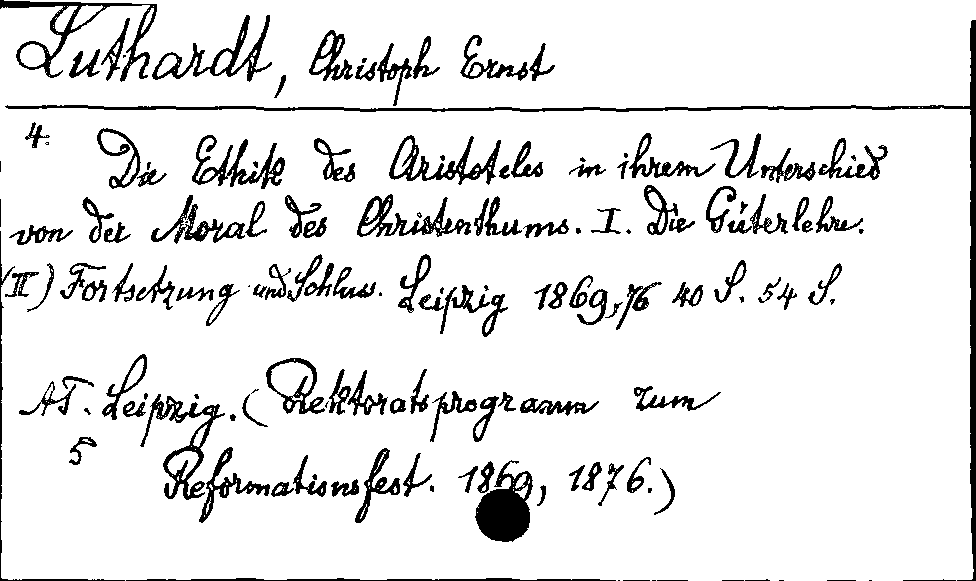 Luthardt, Christoph Ernst
4.
Die Ethik des Aristoteles in ihrem Unterschied
von der Moral des Christenthums. I. Die Güterlehre.
(II) Fortsetzung und Schluss. Leipzig 1869,76 40 S. 54 S.
AT. Leipzig. (Rektoratsprogramm zum
5
Reformationsfest. 1869, 1876.)